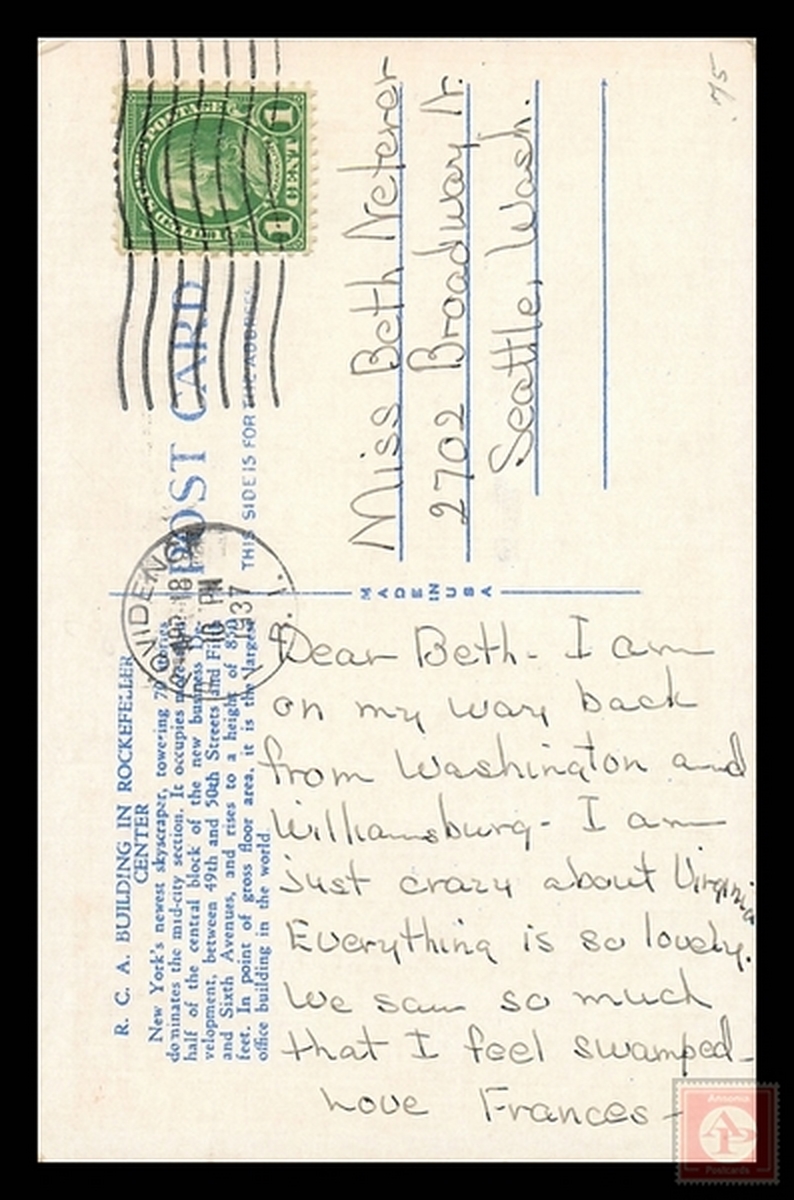 R. C. A. BUILDING IN ROCKEFELLER
CENTER
New York's newest skyscraper, towering 70 stories
dominates the mid-city section. It occupies
half of the central block of the new business de-
velopment, between 49th and 50th Streets and Fifth
and Sixth Avenues, and rises to a height of 850
feet. In point of gross floor area, it is the largest
office building in the world.
POST CARD
THIS SIDE IS FOR THE ADDRESS
UNITED STATES POSTAGE
1 CENT 1
PROVIDENCE
APR 18
10 PM
1937
R. I.
MADE IN USA
Dear Beth - I am
on my way back
from Washington and
Williamsburg - I am
just crazy about Virginia
Everything is so lovely.
We saw so much
that I feel swamped -
Love Frances -
Miss Beth Neterer
2702 Broadway N.
Seattle, Wash.
.75
Ansonia
AP
Postcards